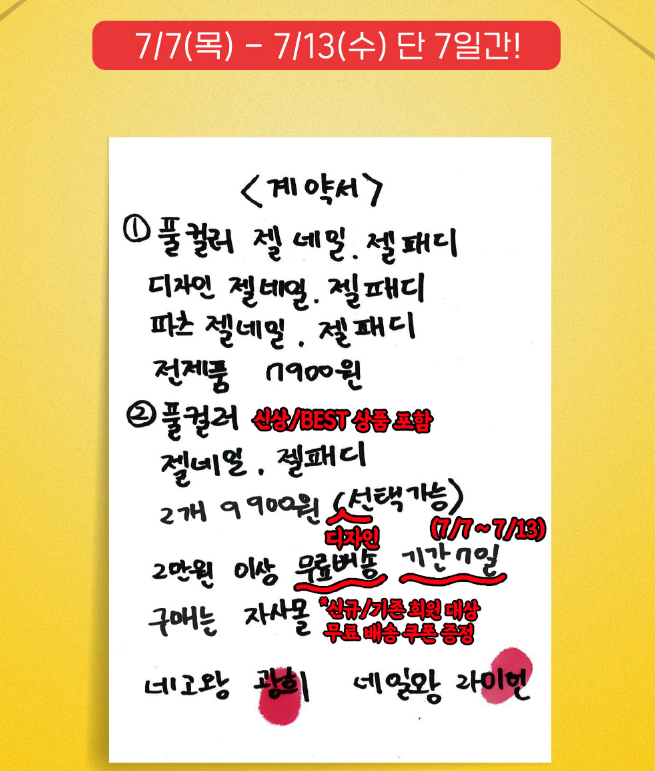 7/7(목) - 7/13(수) 단 7일간!
<계약서>
① 풀컬러 젤 네일. 젤 패디
디자인 젤네일. 젤패디
파츠 젤네일. 젤패디
전제품 7900원
② 풀컬러 신상/BEST 상품 포함
젤네일. 젤패디
2개 9900원 (선택가능)
디자인 (7/7 ~ 7/13)
2만원 이상 무료배송 기간 7일
구매는 자사몰 *신규/기존 회원 대상
무료 배송 쿠폰 증정
네고왕 광희 네일왕 라이헌